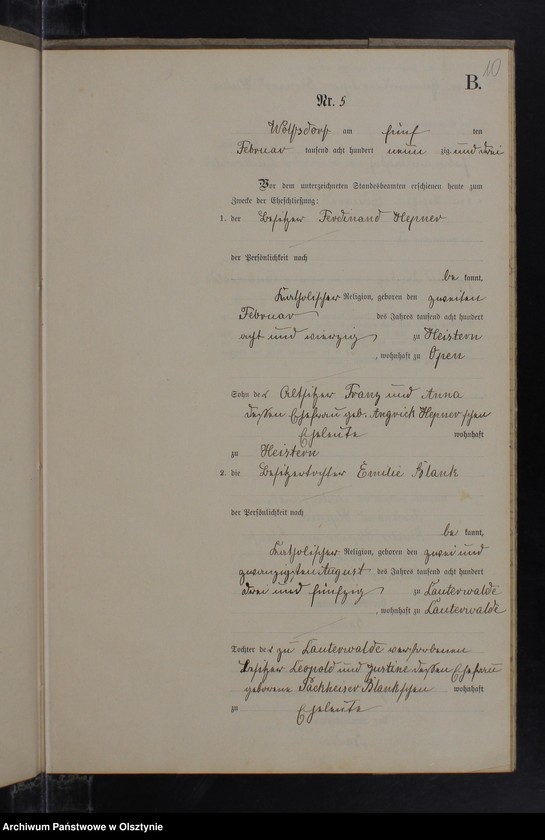 10
B.
Nr. 5
Wolfsdorf am fünf ten
Februar tausend acht hundert neun zig und drei
Vor dem unterzeichneten Standesbeamten erschienen heute zum
Zwecke der Eheschließung:
1. der Besitzer Ferdinand Hepner
der Persönlichkeit nach
be kannt,
katholischer Religion, geboren den zweiten
Februar des Jahres tausend acht hundert
acht und vierzig zu Heistern
, wohnhaft zu Open
Sohn der Altsitzer Franz und Anna
dessen Ehefrau geb. Angrick Hepner'schen
Eheleute wohnhaft
zu Heistern
2. die Besitzertochter Emilie Blank
der Persönlichkeit nach
be kannt,
katholischer Religion, geboren den zwei und
zwanzigsten August des Jahres tausend acht hundert
drei und fünfzig zu Lauterwalde
, wohnhaft zu Lauterwalde
Tochter der zu Lauterwalde verstorbenen
Besitzer Leopold und Justine dessen Ehefrau
geborene Packheiser Blank'schen wohnhaft
zu Eheleute
Archiwum Państwowe w Olsztynie